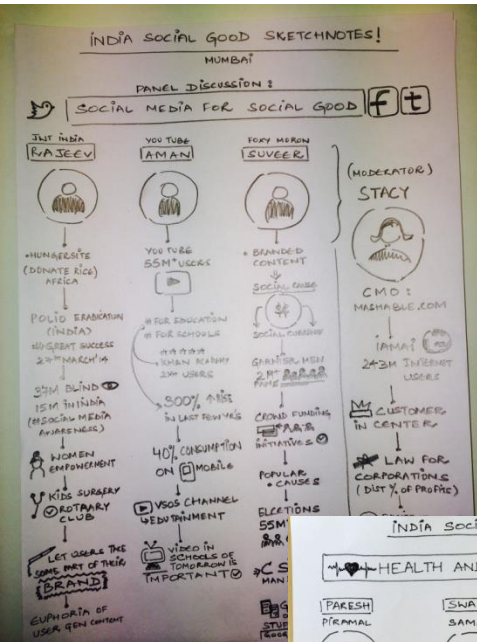 INDIA SOCIAL GOOD SKETCHNOTES!
MUMBAI
PANEL DISCUSSION:
SOCIAL MEDIA FOR SOCIAL GOOD f t
JWT INDIA
RAJEEV
• HUNGERSITE
(DONATE RICE)
AFRICA
POLIO ERADICATION
(INDIA)
GREAT SUCCESS
27th MARCH'14
37M BLIND
15M IN INDIA
(## SOCIAL MEDIA
AWARENESS)
WOMEN
EMPOWERMENT
KIDS SURGERY
ROTRARY
CLUB
LET USERS
SOME PART OF THEIR
BRAND
EUPHORIA OF
USER GEN CONTENT
YOU TUBE
AMAN
YOU TUBE
55M+ USERS
# FOR EDUCATION
# FOR SCHOOLS
KHAN ACADEMY
USERS
300% RISE
IN LAST FEW YRS
40% CONSUMPTION
ON MOBILE
CHANNEL
EDUTAINMENT
VIDEO IN
SCHOOLS OF
TOMORROW IS
IMPORTANT
FOXY MORON
SUVEER
• BRANDED
CONTENT
SOCIAL CAUSE
SOCIAL CURRENCY
GARNIER MEN
2M+
FANS
CROWD FUNDING
INITIATIVES
POPULAR
• CAUSES
55M
(MODERATOR)
STACY
CMO:
MASHABLE.COM
IAMAI
243M INTERNET
USERS
CUSTOMER
IN CENTER
LAW FOR
CORPORATIONS
(DIST % OF PROFITS)
INDIA SOCI
HEALTH AN
PARESH
PIRAMAL
SWA
SAM